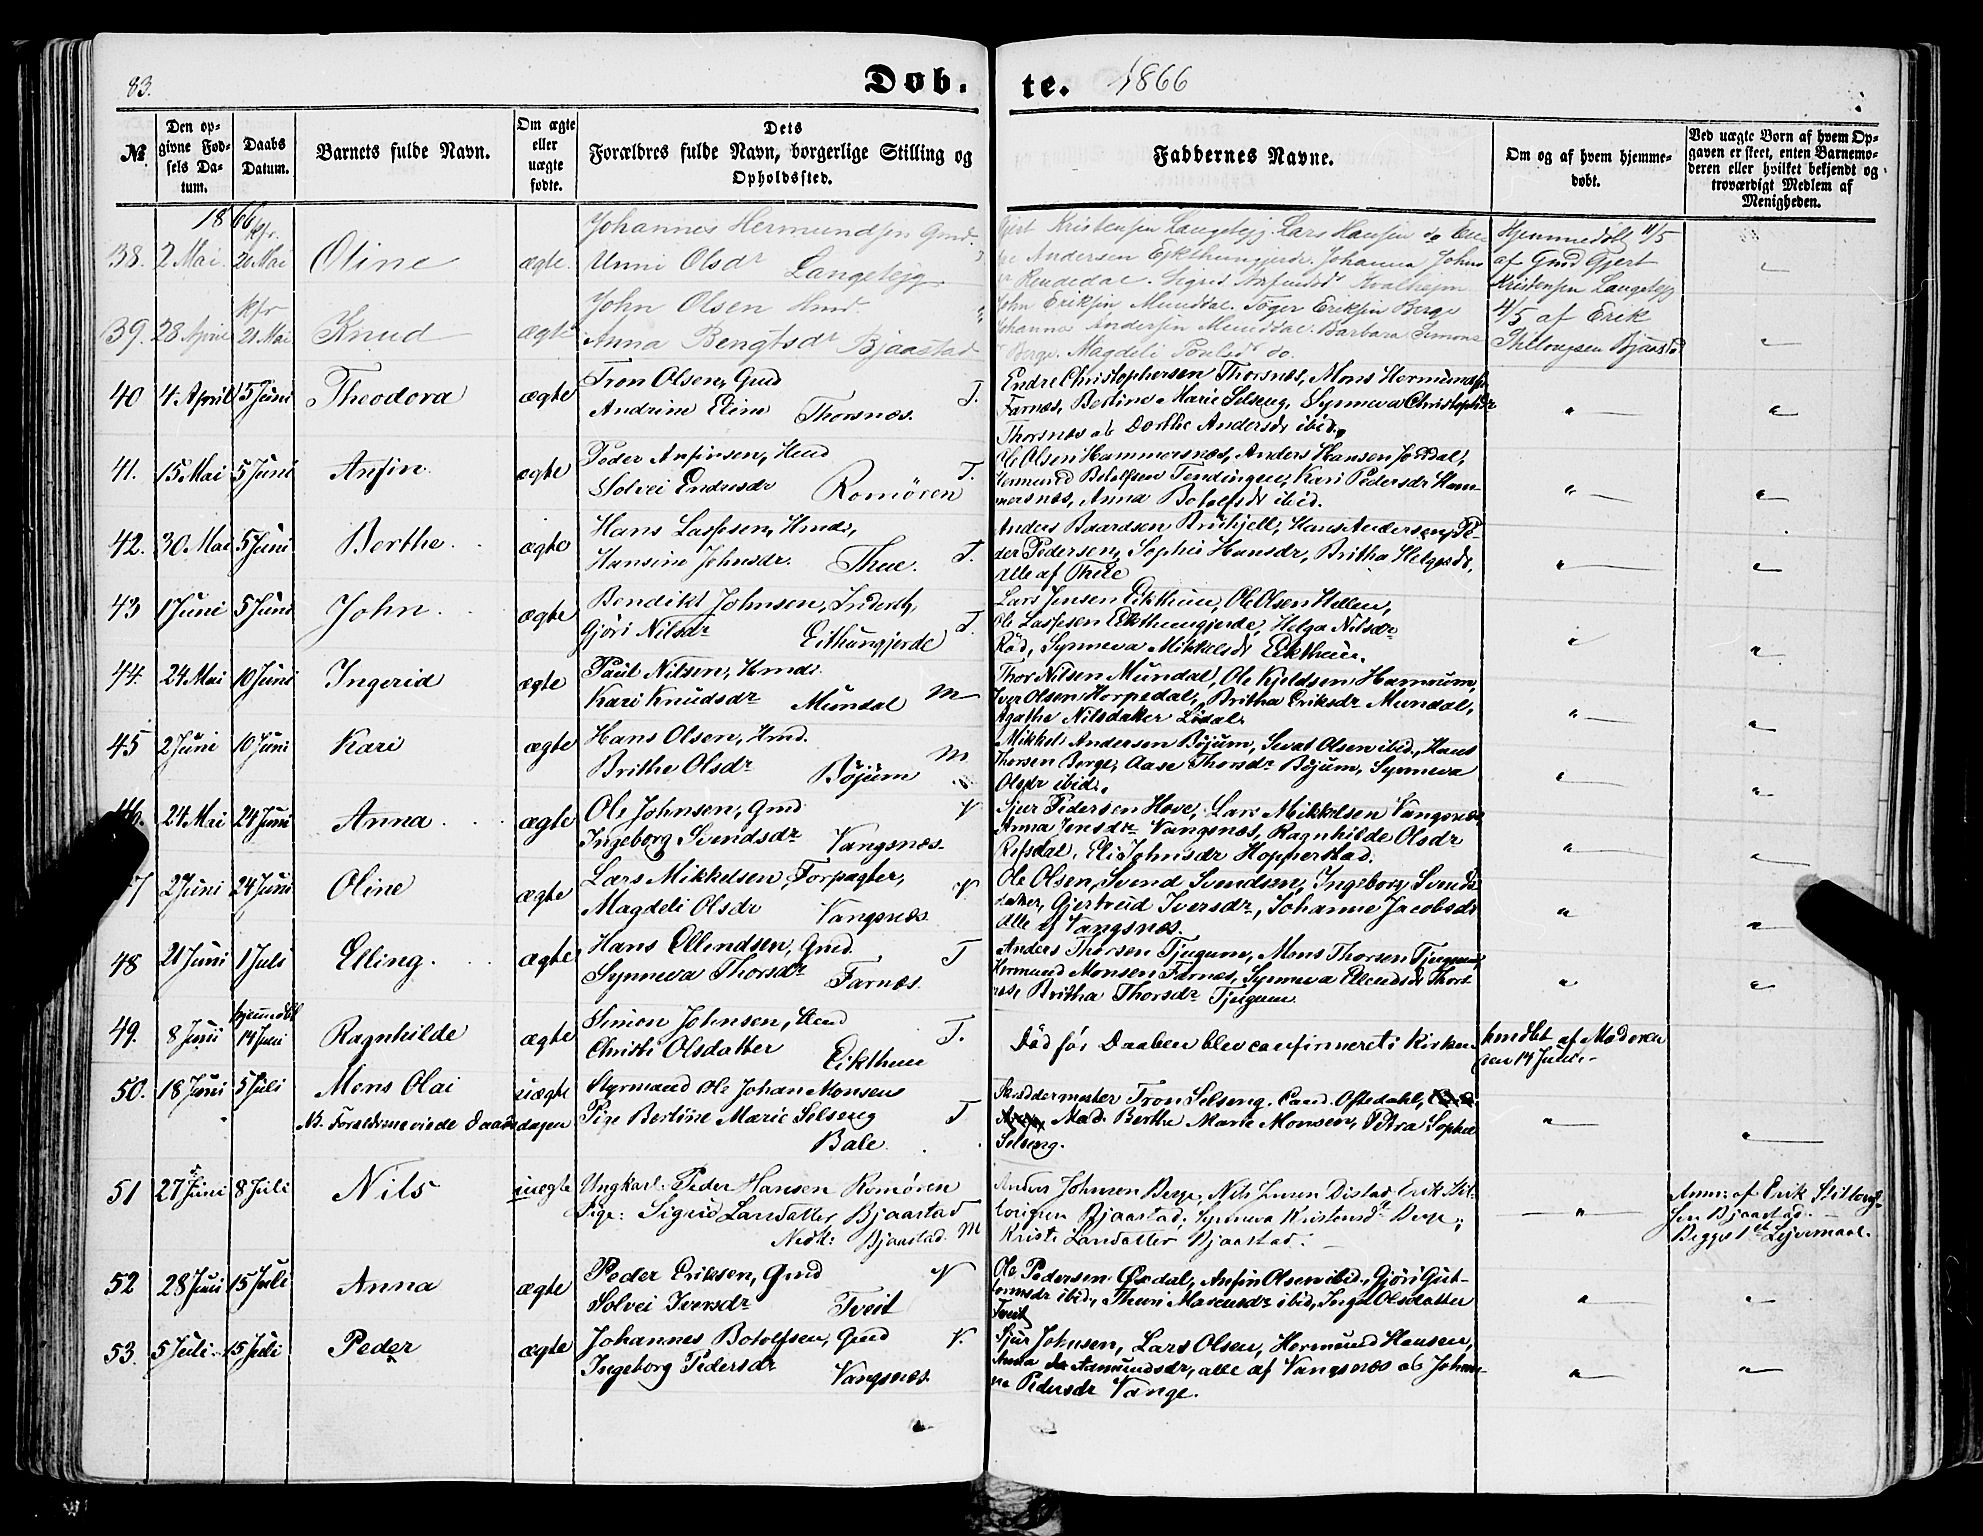 83.
Døb-
te.
1866
№
Den op-
givne Fød-
sels Da-
tum.
Daabs
Datum.
Barnets fulde Navn.
Om ægte
eller
uægte
fødte.
Dets
Forældres fulde Navn, borgerlige Stilling og
Opholdssted.
Faddernes Navne.
Om og af hvem hjemme-
døbt.
Ved uægte Børn af hvem Op-
gaven er skeet, enten Barnemo-
deren eller hvilket bekjendt og
troværdigt Medlem af
Menigheden.
1866
38. 2 Mai kfr. 20 Mai Oline ægte. Johannes Hermundsen Gmd.
Unni Olsdr Langeteig.
Gjert Kristensen Langeteig. Lars Hansen do
Andersen Eikthungjerde. Johanna Johns
Rendedal. Sigrid Kvalheim
Hjemmedøbt 11/5
af Gmd Gjert
Kristensen Langeteig
39. 28 April kfr 21 Mai Knud ægte John Olsen Hmd.
Anna Bengtsdr Bjaastad
John Eriksen Munddal. Tøger Eriksen Berge
Johanna Andersen Munddal. Barbara Simons
Berge. Magdeli Poulsdr do.
4/5 af Erik
Stillougsen Bjaastad
40 4. April 5 Juni Theodora ægte Tron Olsen, Gmd T.
Andrine Eline Thorsnæs.
Endre Christophersen Thorsnæs, Mons Hermundsen
Farnæs, Bertine Marie Selseng, Synneva Christophdr
Thorsnæs ob Dorthe Andersdr ibid.
41. 15 Mai 5 Juni Anfin. ægte Peder Anfinsen, Hmd T.
Solvei Endresdr Romøren
Ole Olsen Hammersnæs, Anders Hansen Jordal,
Hermund Botolfsen Tendingen, Kari Pedersdr Ham-
mersnæs, Anna Botolfsdr ibid.
42. 30. Mai 5 Juni Berthe. ægte Hans Lassesen, Hmd.,
Hansine Johnsdr. Thue. T.
Anders Baardsen Bruhjell, Hans Andersen, Pe-
der Pedersen, Sophie Hansdr, Britha Helgesdr,
Alle af Thue
43 1 Juni 5 Juni John. ægte Bendikt Johnsen, Inderst,
Gjøri Nilsdr Eithungjerde T.
Lars Jensen Eikthun, Ole Olsen Hellen,
Ole Lassesen Eikthungjerde, Helga Nilsdr
Rød, Synneva Mikkelsdr Eikthun.
44. 24 Mai 10 Juni Ingerid ægte Paul Nilsen, Hmd.
Kari Knudsdr Mundal M
Thor Nilsen Mundal, Ole Kjeldsen Hamrum,
Iver Olsen Horpedal, Britha Eriksdr Mundal,
Agathe Nilsdatter Lidal.
45 2 Juni 10 Juni Kari ægte Hans Olsen, Hmd.
Brithe Olsdr Bøjum M
Mikkel Andersen Bøjum, Sevat Olsen ibid., Hans
Thorsen Berge, Aase Thorsdr Bøjum, Synneva
Olsdr ibid.
46. 24 Mai 24 Juni Anna. ægte Ole Johnsen, Gmd V
Ingeborg Svendsdr Vangsnæs.
Sjur Pedersen Hove, Lars Mikkelsen Vangsnæs
Anna Jensdr Vangsnæs, Ragnhilde Olsdr
Refsdal, Eli Johnsdr Hopperstad.
47 2 Juni 24 Juni Oline ægte Lars Mikkelsen, Forpagter,
Magdeli Olsdr Vangsnæs. V.
Ole Olsen, Svend Svendsen, Ingeborg Svends-
datter, Gjertrud Iversdr, Johanne Jacobsdr
Alle af Vangsnæs.
48 21 Juni 1 Juli Elling. ægte Hans Ellendsen, Gmd. T
Synneva Thorsdr Farnæs
Anders Thorsen Tjugum, Mons Thorsen Tjugum
Hermund Monsen Farnæs, Synneva Ellendsdr Thors-
næs, Britha Thorsdr Tjugum
49. 8 Juni hjemmedøbt 14 Juni Ragnhilde ægte Simon Johnsen, Hmd T.
Christi Olsdatter Eikthun
Død før Daaben blev confirmeret i Kirken
hmdbt af Moderen
den 14 Juni.
50. 18 Juni 5 Juli Mons Olai uægte Styrmand Ole Johan Monsen
NB. Forældrene viede Daabsdagen Pige Bertine Marie Selseng T
Bale.
Skræddermester Tron Selseng. Cand. Oftedahl,
Mad. Berthe Marie Monsen, Petra Sophie
Selseng.
51 27 Juni 8 Juli Nils uægte Ungkarl. Peder Hansen Romøren
Pige: Sigrid Larsdatter Bjaastad
Nedk: Bjaastad. M
Anders Johnsen Berge, Nils Distad, Erik Stil-
lougsen Bjaastad, Synneva Kristensdr Berge,
Kristi Larsdatter Bjaastad.
Anm: af Erik Stilloug-
sen Bjaastad.
Begges 1ste Lejermaal.
52 28 Juni 15 Juli Anna ægte Peder Eriksen, Gmd V
Solvei Iversdr Tveit
Ole Pedersen Øxdal, Anfin Olsen ibid., Gjøri Gut-
tormsdr ibid., Thuri Marcusdr ibid, Inga Olsdatter
Tveit
53. 5 Juli. 15 Juli Peder ægte Johannes Botolfsen, Gmd V.
Ingeborg Pedersdr Vangsnæs
Sjur Johnsen, Lars Olsen, Hermund Hansen,
Anna Aamundsdr, alle af Vangsnæs ob Johan-
na Pedersdr Vange.